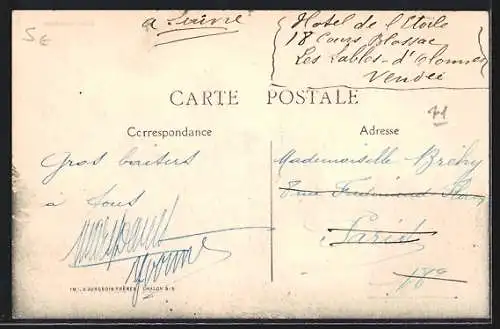 5€
à suivre
Hotel de l'Etoile
18 Cours Blossac
Les Sables-d'Olonnes
Vendée
CARTE POSTALE
Correspondance
Adresse
41
Gros baisers
à tous
Yvonne
Mademoiselle Bréhy
8 rue Ferdinand Flocon
Paris
18e
IMP. BOURGEOIS FRÈRES CHALON-S-S